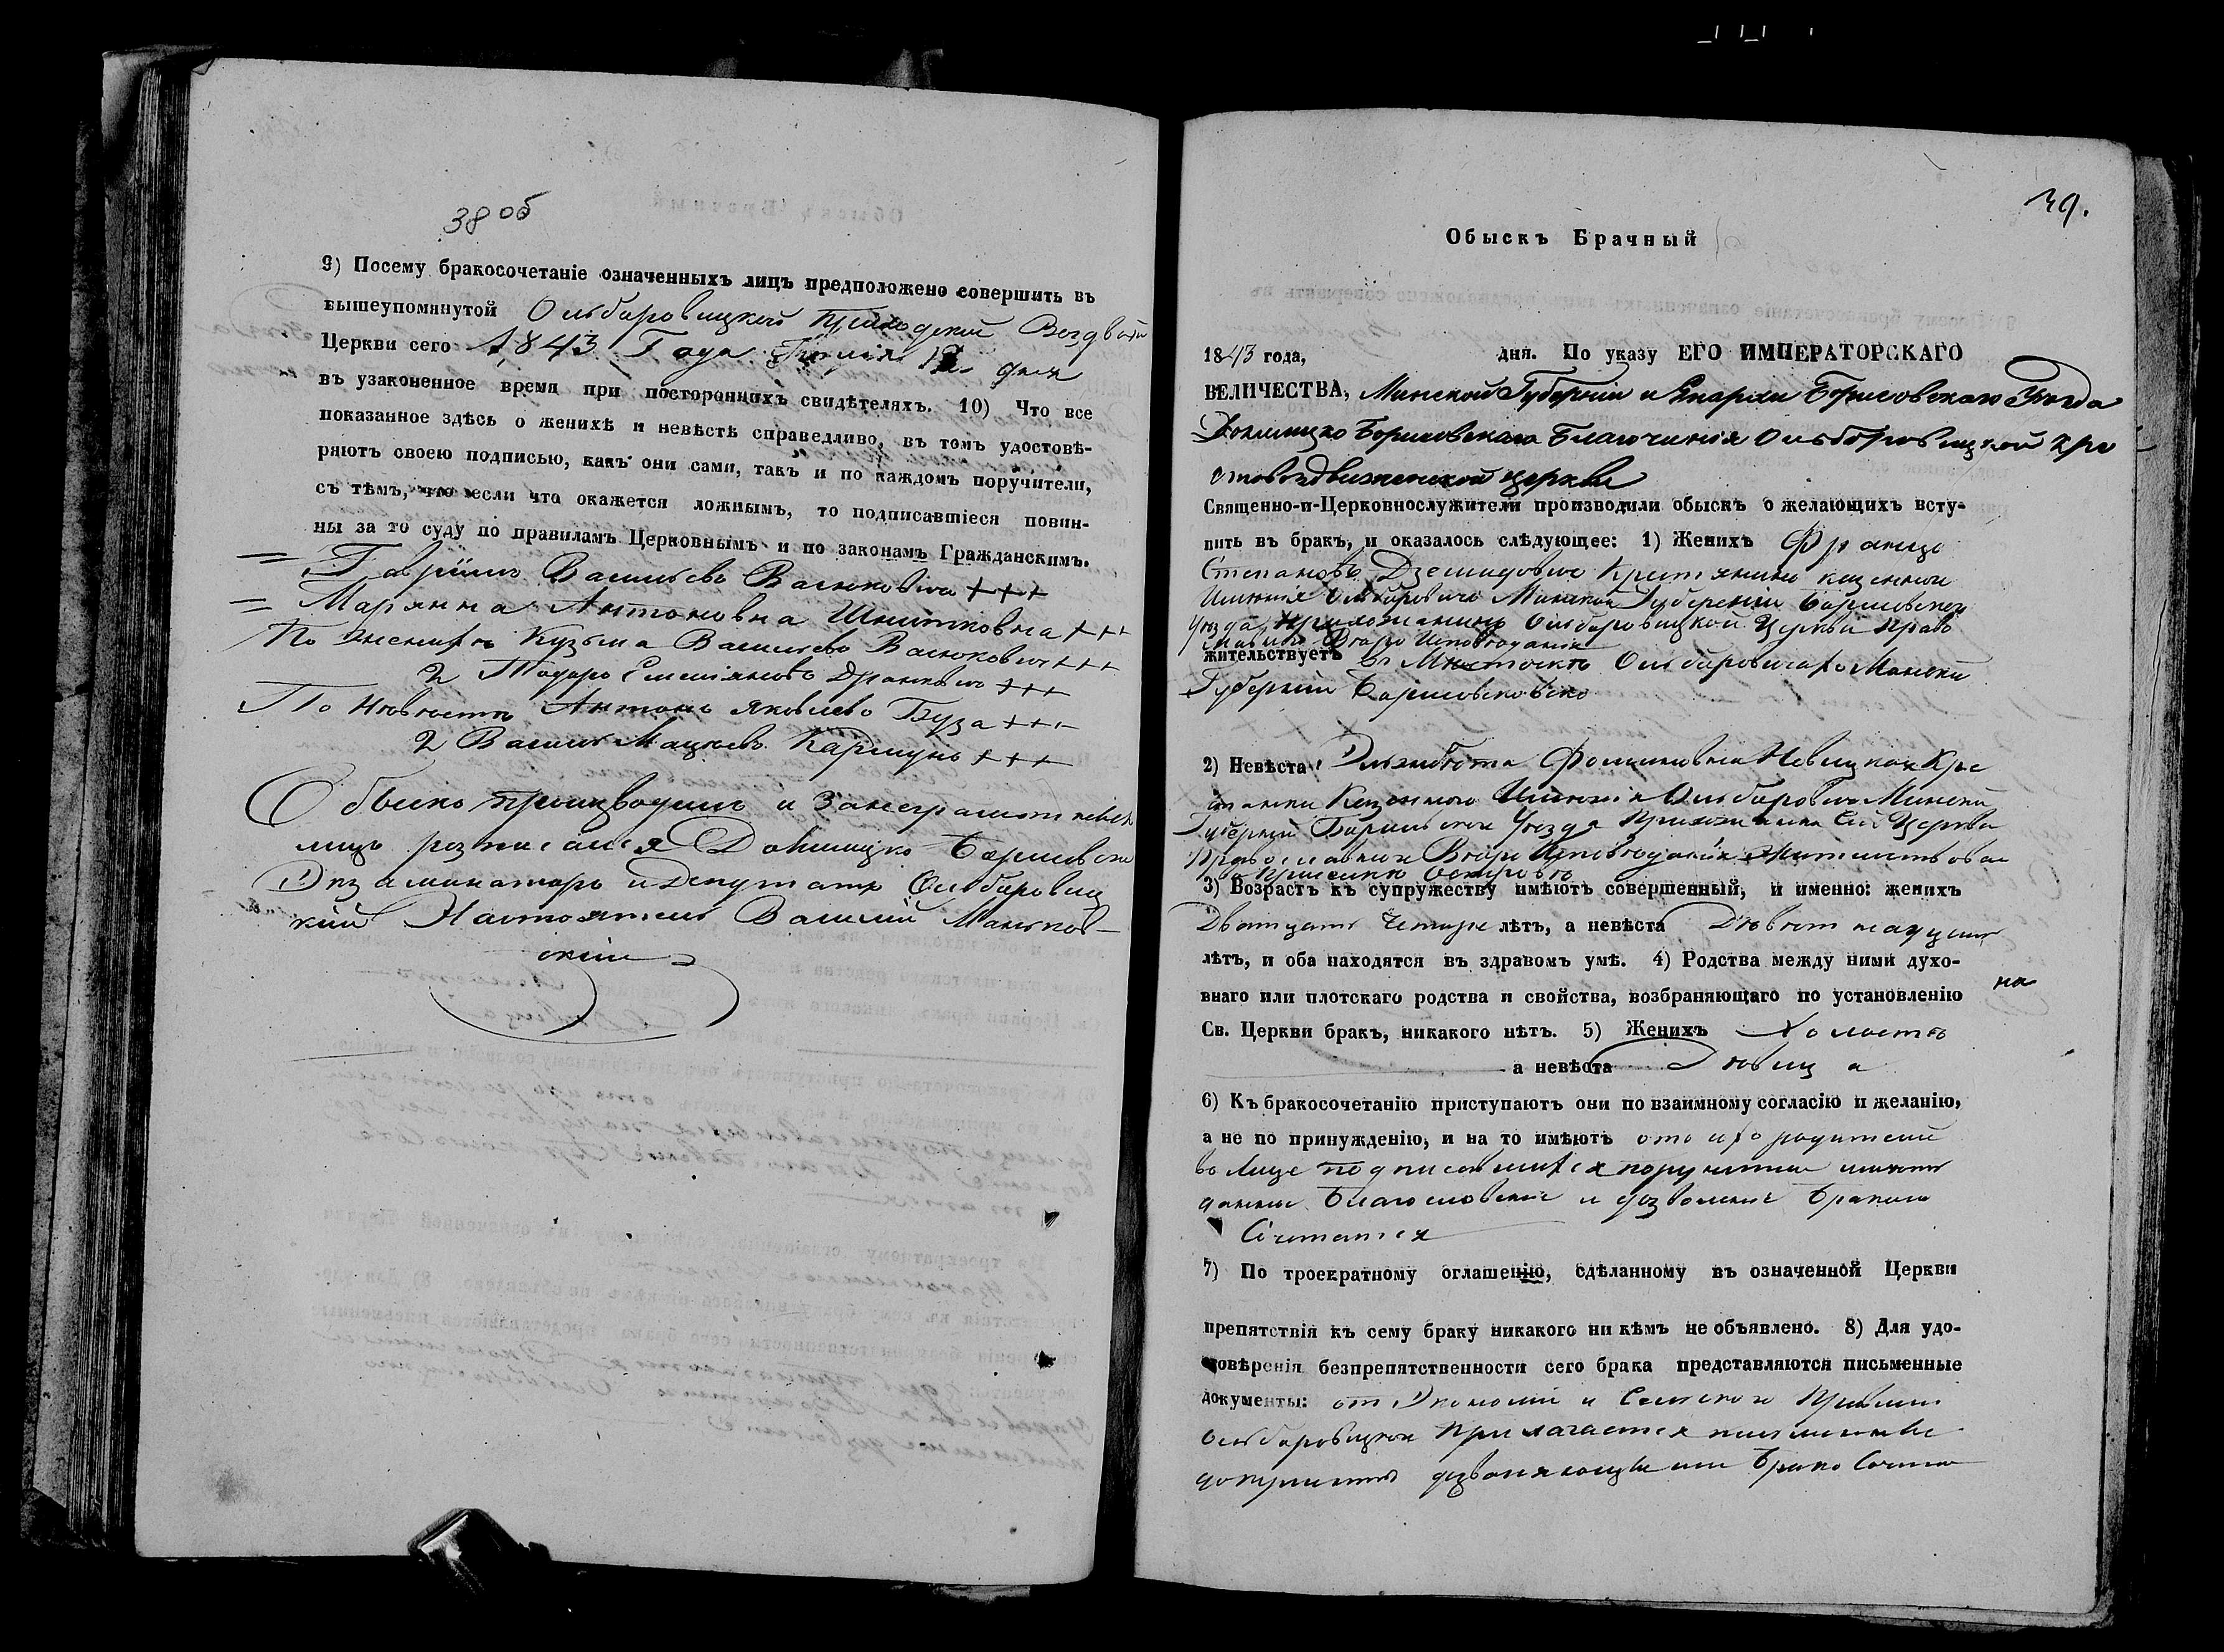 38 об
9) Посему бракосочетаніе означенныхъ лицъ предположено совершить въ
вышеупомянутой Ольберовицкой Приходской Воздвиж
Церкви сего 1843 Года дня
въ узаконенное время при постороннихъ свидѣтеляхъ. 10) Что все
показанное здѣсь о женихѣ и невѣстѣ справедливо, въ томъ удостовѣ-
ряютъ своею подписью, какъ они сами, такъ и по каждомъ поручители,
съ тѣмъ, что если что окажется ложнымъ, то подписавшіеся повин-
ны за то суду по правиламъ Церковнымъ и по законамъ Гражданскимъ.
= Гаврiилъ Васильевъ Васюковичъ +++
= Марянна Антоновна Шнитковна +++
По женихѣ Кузьма Васильевъ Васюковичъ +++
2 Тодоръ +++
По Невѣстѣ Антонъ Яковлевъ Буза +++
2 Василь Мацкевъ Карпунъ +++
Обыскъ производилъ и за неграмотныхъ
лицъ росписался Докшицко Борисовскій
Экзаминаторъ и Депутатъ Ольберовиц
кий Настоятель Василій Маньков-
скій
39.
Обыскъ Брачный
1843 года, дня. По указу ЕГО ИМПЕРАТОРСКАГО
ВЕЛИЧЕСТВА, Минской Губерніи и Епархіи Борисовскаго Уезда
Докшицко Борисовскаго Благочинія Ольберовицкой Кре
стовоздвиженской церкви
Священно-и-Церковнослужители производили обыскъ о желающихъ всту-
пить въ бракъ, и оказалось слѣдующее: 1) Женихъ Францъ
Степановъ Дземидовичъ Крестянинъ казенного
Имѣнія Ольберовичъ Минской Губерніи Борисовскаго
Уезда, Прихожанинъ Ольберовицкой Церкви Право
славного Вѣроисповѣданія
жительствуетъ въ Мѣстечкѣ Ольберовичахъ Минской
Губерніи
2) Невѣста Эльжбета Фоминовна Новицкая Кре
стянка Казенного Имѣнія Ольберовичъ Минской
Губерніи Борисовскаго Уезда Прихожанка Сей Церкви
Православного Вѣроисповѣданія
3) Возрастъ къ супружеству имѣютъ совершенный, и именно: женихъ
Двадцать Четыре лѣтъ, а невѣста Девятнадцать
лѣтъ, и оба находятся въ здравомъ умѣ. 4) Родства между ними духо-
внаго или плотскаго родства и свойства, возбраняющаго по установленію
Св. Церкви бракъ, никакого нѣтъ. 5) Женихъ Холостъ
а невѣста Дѣвица
6) Къ бракосочетанію приступаютъ они по взаимному согласію и желанію,
а не по принужденію, и на то имѣютъ отъ ихъ родителей
въ Лице подписавшихся поручители
данные Благословеніе и дозволеніе Бракомъ
Сочетатся
7) По троекратному оглашенію, сдѣланному въ означенной Церкви
препятствія къ сему браку никакого ни кѣмъ не объявлено. 8) Для удо-
товѣренія безпрепятственности сего брака представляются письменные
документы: отъ Экономіи и Сельского
Ольберовицкого Прилагается письменные
документы дозволяющіе имъ Брако Сочета